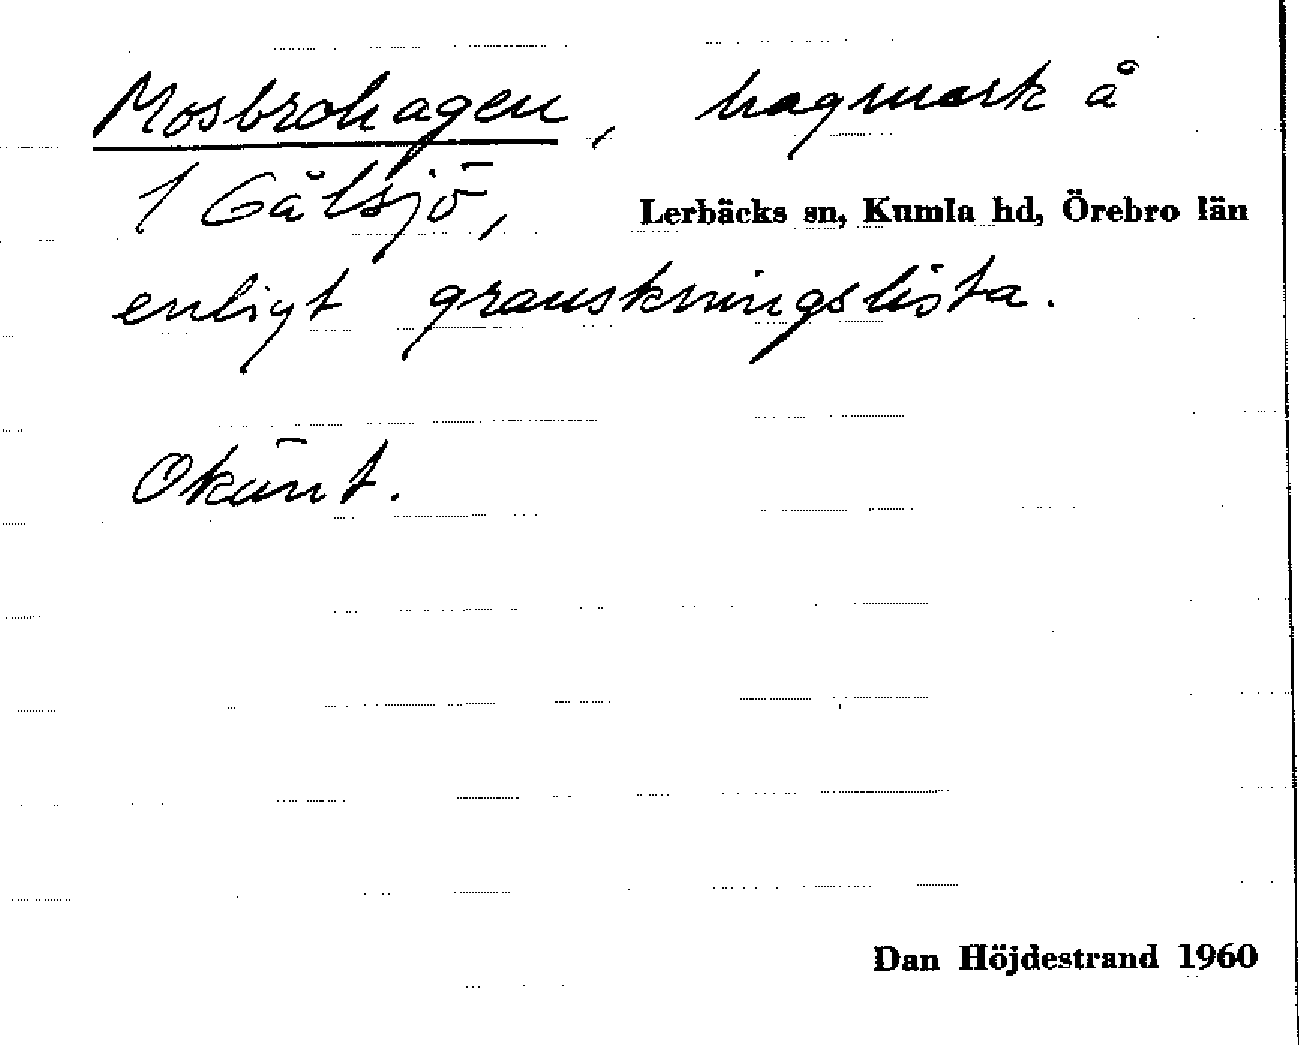 Mosbrohagen, hagmark å
1 Gålsjö, Lerbäcks sn, Kumla hd, Örebro län
enligt granskningslista.
Okänt.
Dan Höjdestrand 1960